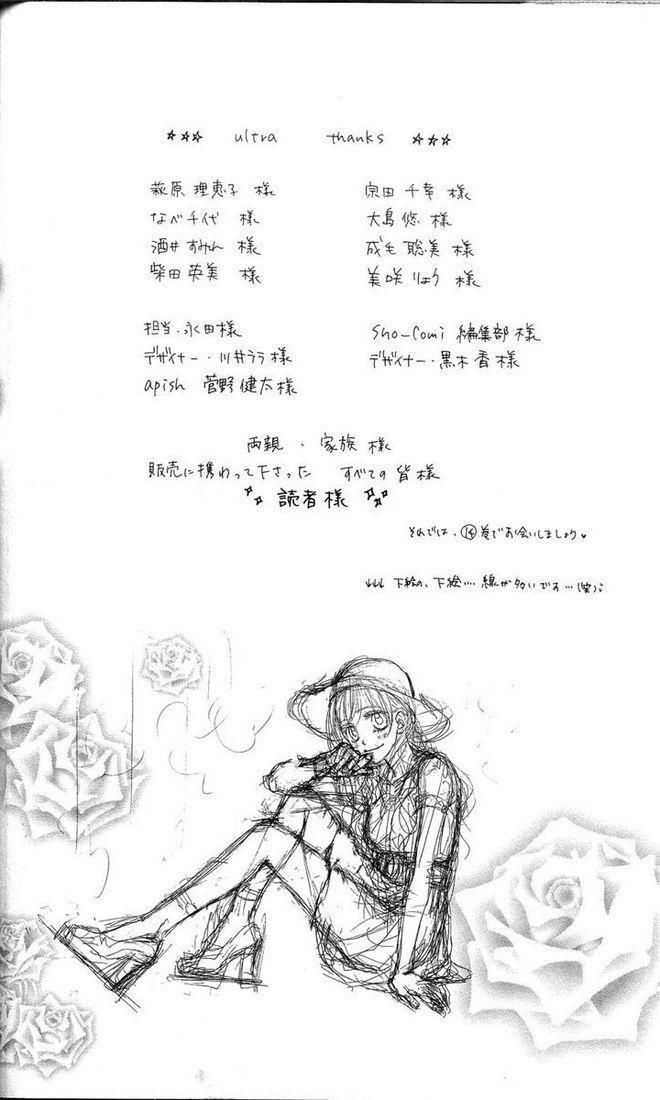 ☆☆☆ ultra thanks ☆☆☆
萩原 理恵子 様
なべ千代 様
酒井 すみれ 様
柴田 英美 様
宗田 千幸 様
大島 悠 様
成毛 聡美 様
美咲 りょう 様
担当・永田様
デザイナー・川井ララ様
apish 菅野 健太様
Sho-Comi 編集部 様
デザイナー・黒木 香 様
両親、家族 様
販売に携わって下さった すべての 皆様
読者様
それでは、⑭巻でお会いしましょう♥
↓↓↓ 下絵の、下絵… 線が多いです…(笑)